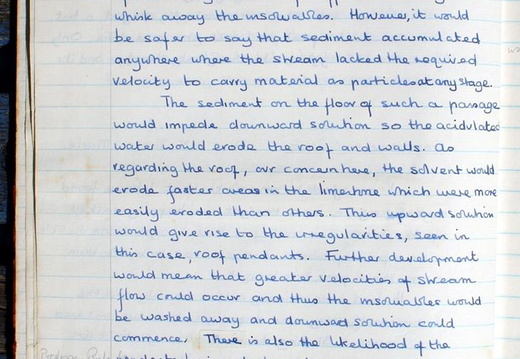 whisk away the insolubles. However, it would
be safer to say that sediment accumulated
anywhere where the stream lacked the required
velocity to carry material as particles at any stage.
The sediment on the floor of such a passage
would impede downward solution so the acidulated
water would erode the roof and walls. As
regarding the roof, our concern here, the solvent would
erode faster areas in the limestone which were more
easily eroded than others. This upward solution
would give rise to the irregularities, seen in
this case, roof pendants. Further development
would mean that greater velocities of stream
flow could occur and thus the insolubles would
be washed away and downward solution could
commence. There is also the likelihood of the